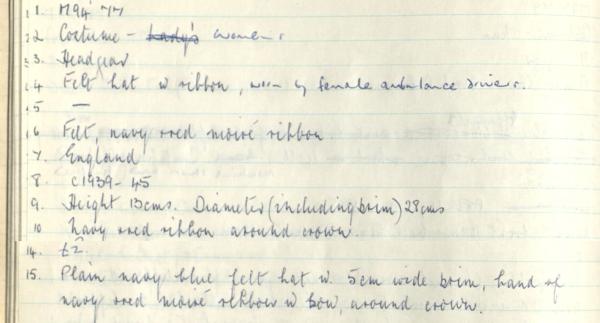 1. M94'77
2 Costume - Lady's womens
3. Headgear
4 Felt hat w ribbon, worn by female ambulance drivers.
5 —
6 Felt, navy & red moiré ribbon
7. England
8 c1939-45
9. Height 13cms. Diameter (including brim) 28cms
10 navy & red ribbon around crown.
14. £2.
15. Plain navy blue felt hat w. 5cm wide brim, band of
navy & red moiré ribbon w bow, around crown.